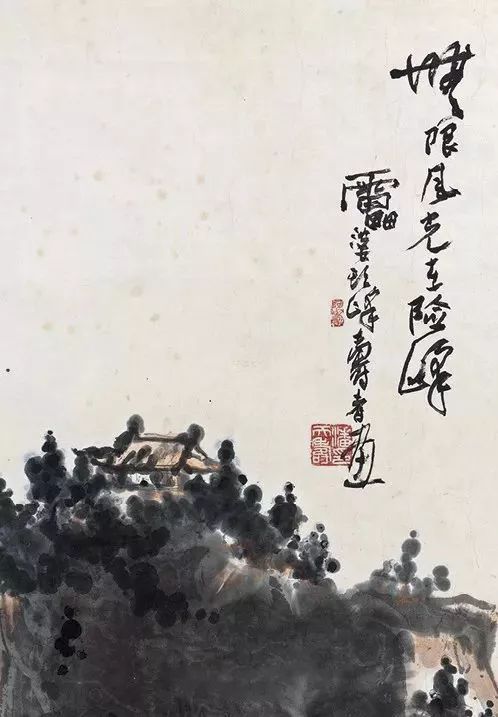 無限風光在險峰
雷婆頭峰壽者畫